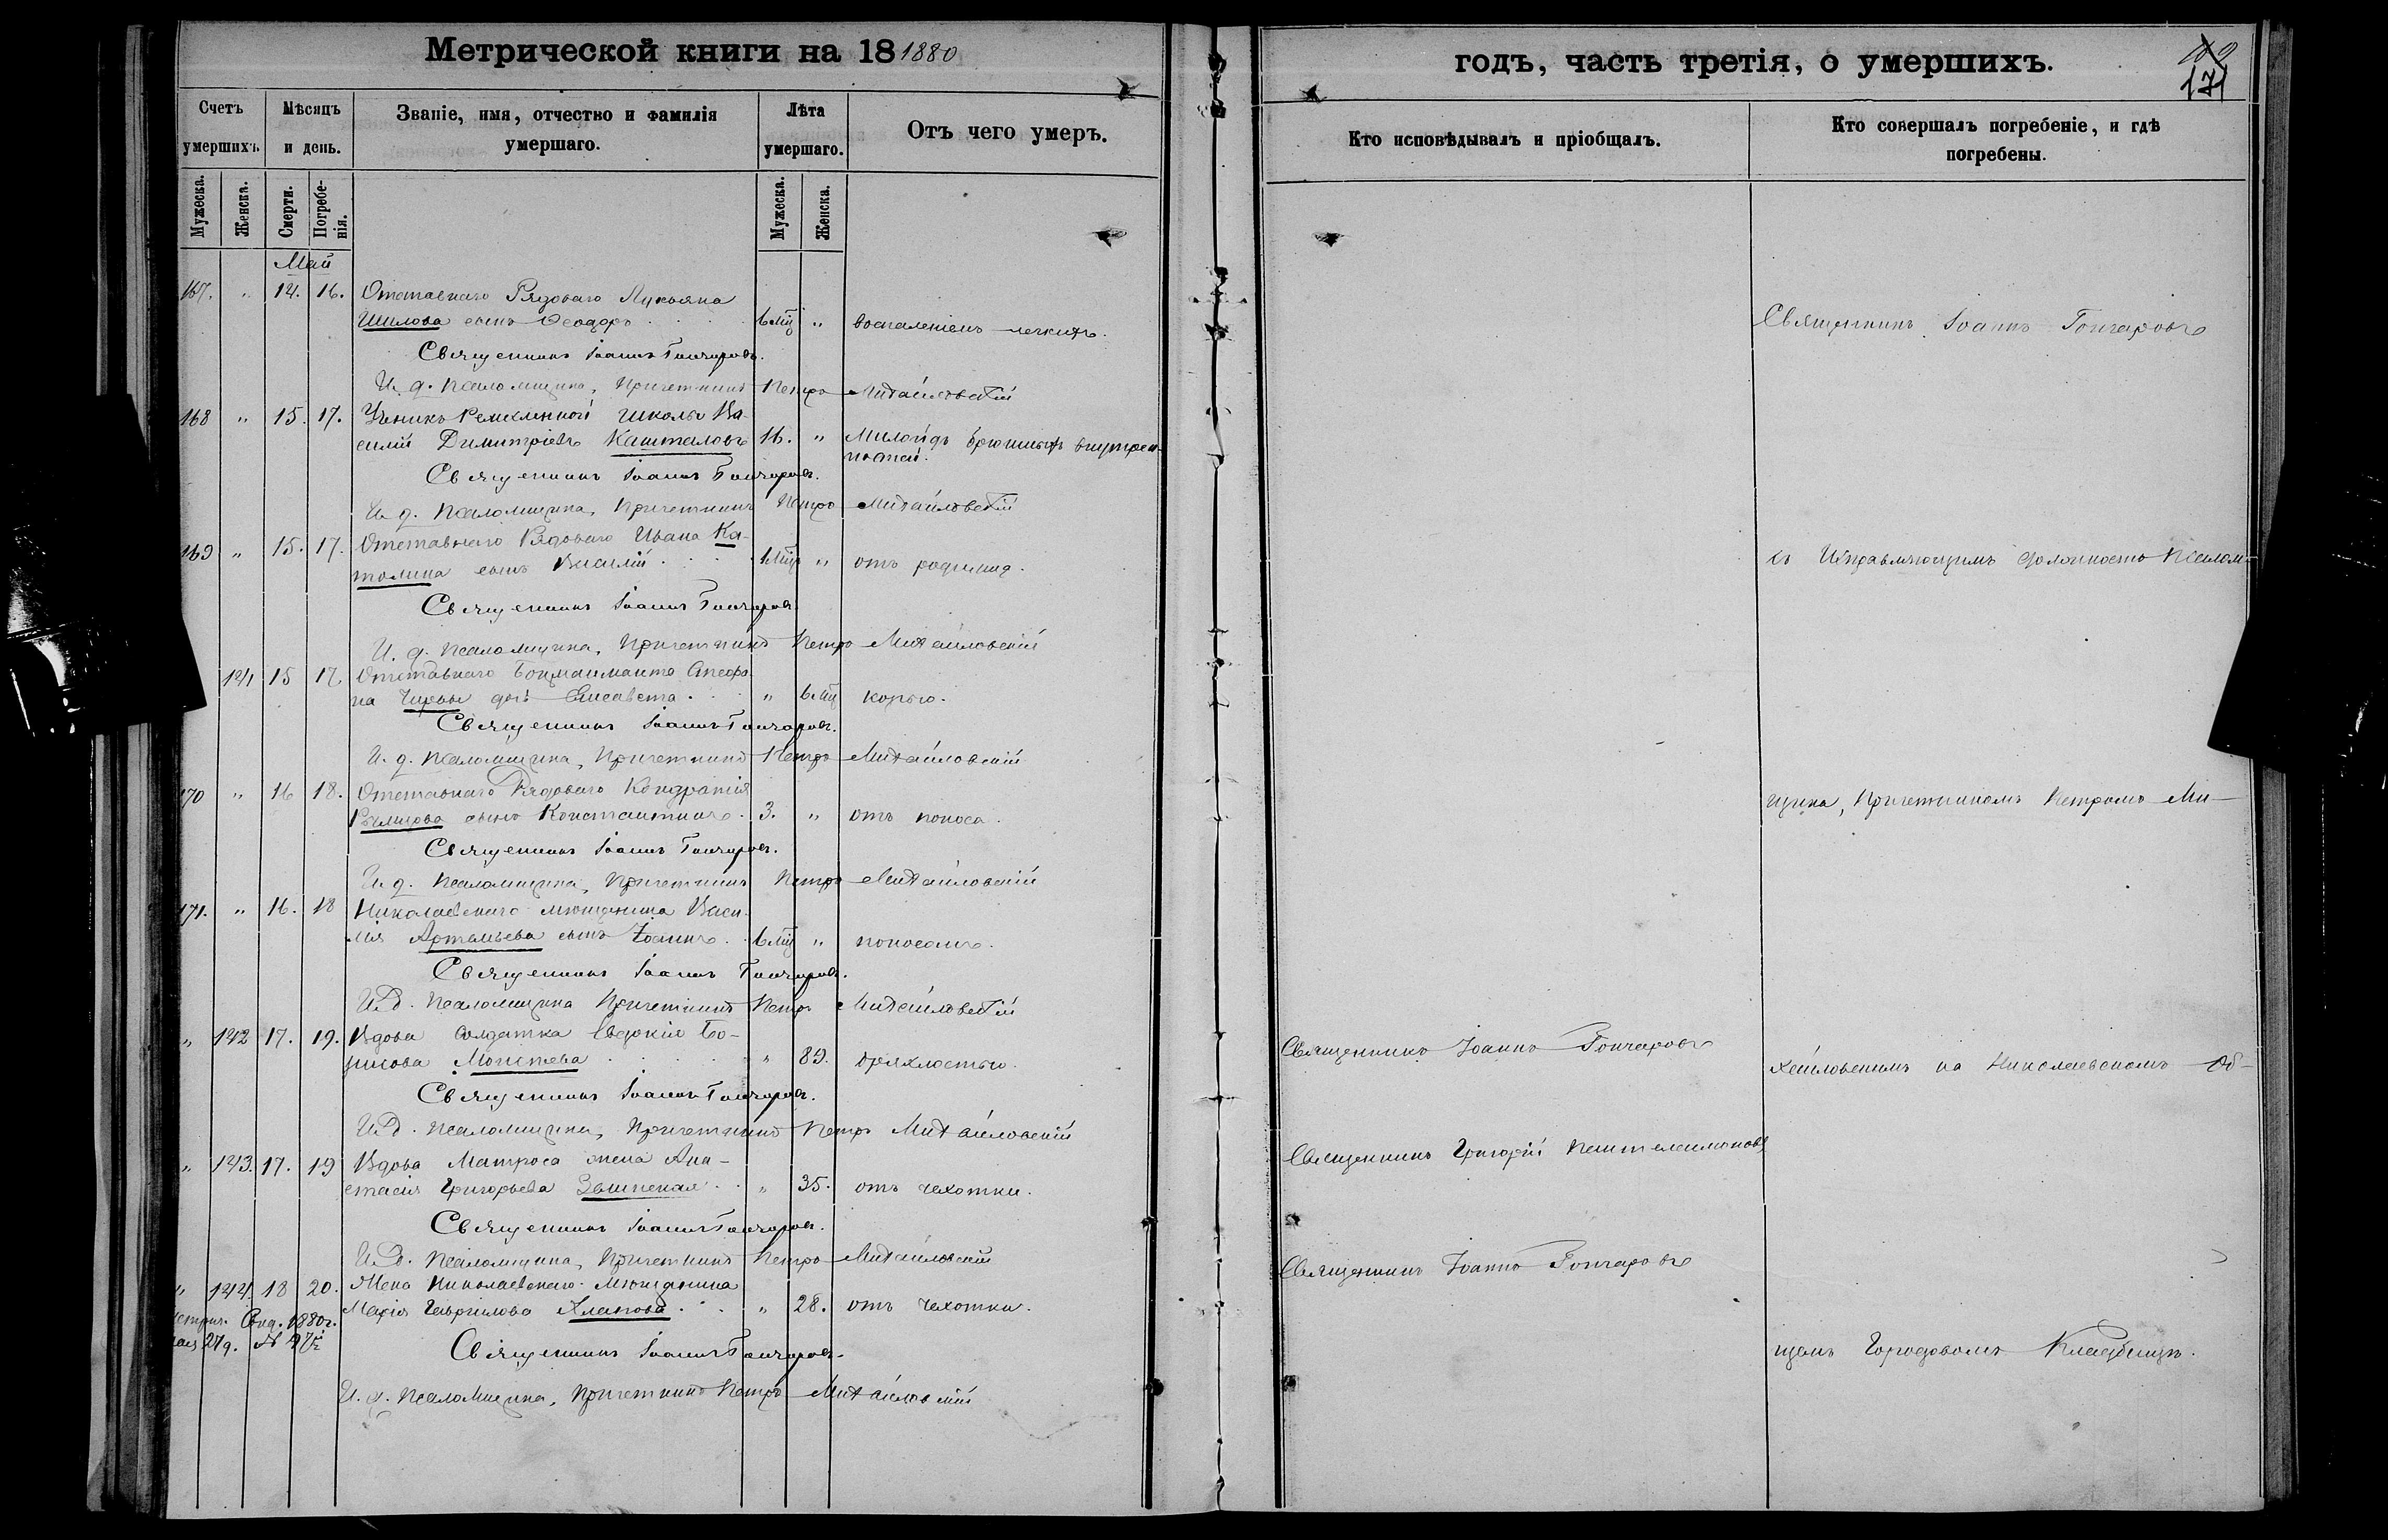 Метрической книги на 18 1880
годъ, часть третія, о умершихъ.
171
Счетъ умершихъ.
Мѣсяцъ и день.
Званіе, имя, отчество и фамилія умершаго.
Лѣта умершаго.
Отъ чего умеръ.
Кто исповѣдывалъ и пріобщалъ.
Кто совершалъ погребеніе, и гдѣ погребены.
Мужеска.
Женска.
Смерти.
Погребенія.
Мужеска.
Женска.
Май
167. " 14. 16. Отставнаго Рядоваго Лукьяна
Шилова сынъ Ѳеодоръ 6 мц " воспаленіемъ легкихъ.
Священникъ Іоаннъ Гончаровъ
Священникъ Іоаннъ Гончаровъ.
И. д. Псаломщика, Причетникъ Петръ Михайловскій
168 " 15. 17. Ученикъ Ремесленной школы Ва-
силій Димитріевъ Кашталовъ 16. " брюшныхъ внутрен-
ностей.
Священникъ Іоаннъ Гончаровъ.
И. д. Псаломщика, Причетникъ Петръ Михайловскій
169 " 15. 17. Отставнаго Рядоваго Ивана Ка-
толина сынъ Василій 1 мц " отъ родимца.
съ Исправляющимъ должность Псалом-
Священникъ Іоаннъ Гончаровъ.
И. д. Псаломщика, Причетникъ Петръ Михайловскій
141 15 17 Отставнаго Боцманмата Стефа-
на дочь Елисавета " 6 мц корью.
Священникъ Іоаннъ Гончаровъ.
И. д. Псаломщика, Причетникъ Петръ Михайловскій
170 " 16 18. Отставнаго Рядоваго Кондратія
сынъ Константинъ 3. " отъ поноса.
щика, Причетникомъ Петромъ Ми-
Священникъ Іоаннъ Гончаровъ.
И. д. Псаломщика, Причетникъ Петръ Михайловскій
171. " 16. 18 Николаевскаго мѣщанина Васи-
лія Артемьева сынъ Іоаннъ 6 мц " поносомъ.
Священникъ Іоаннъ Гончаровъ.
И. д. Псаломщика Причетникъ Петръ Михайловскій
" 142 17. 19. Вдова солдатка Евдокія Бо-
рисова 89. дряхлостью.
Священникъ Іоаннъ Гончаровъ
хайловскимъ на Николаевскомъ Об-
Священникъ Іоаннъ Гончаровъ.
И. д. Псаломщика, Причетникъ Петръ Михайловскій
" 143. 17. 19 Вдова Матроса жена Ана-
стасія Григорьева " 35. отъ чахотки.
Священникъ Григорій Пантелеимоновъ
Священникъ Іоаннъ Гончаровъ.
И. д. Псаломщика, Причетникъ Петръ Михайловскій
" 144. 18 20. Жена Николаевскаго Мѣщанина
Марія Гаврилова " 28. отъ чахотки.
Священникъ Іоаннъ Гончаровъ
1880 г.
27 д. №
Священникъ Іоаннъ Гончаровъ.
щемъ Городовомъ Кладбищѣ.
И. д. Псаломщика, Причетникъ Петръ Михайловскій